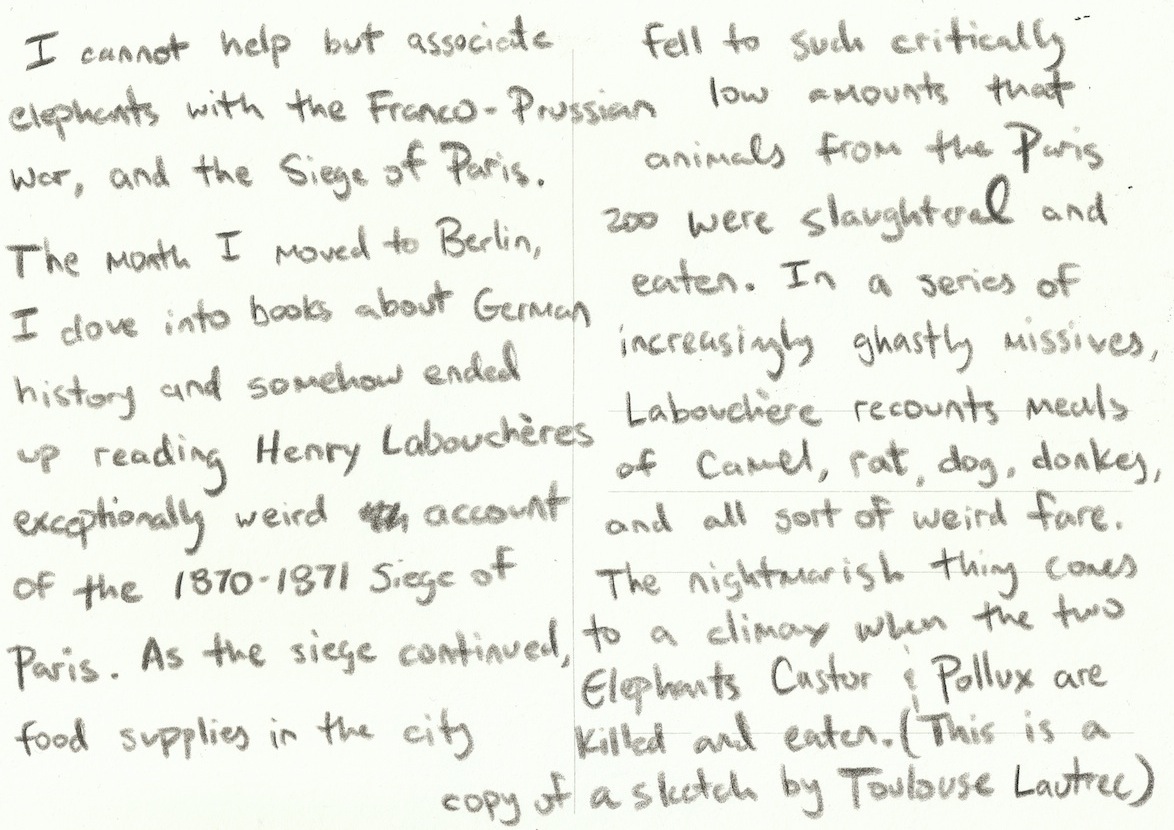 I cannot help but associate
elephants with the Franco-Prussian
War, and the Siege of Paris.
The month I moved to Berlin,
I dove into books about German
history and somehow ended
up reading Henry Labouchères
exceptionally weird account
of the 1870-1871 Siege of
Paris. As the siege continued,
food supplies in the city
fell to such critically
low amounts that
animals from the Paris
zoo were slaughtered and
eaten. In a series of
increasingly ghastly missives,
Labouchère recounts meals
of Camel, rat, dog, donkey,
and all sort of weird fare.
The nightmarish thing comes
to a climax when the two
Elephants Castor & Pollux are
killed and eaten. (This is a
copy of a sketch by Toulouse Lautrec)